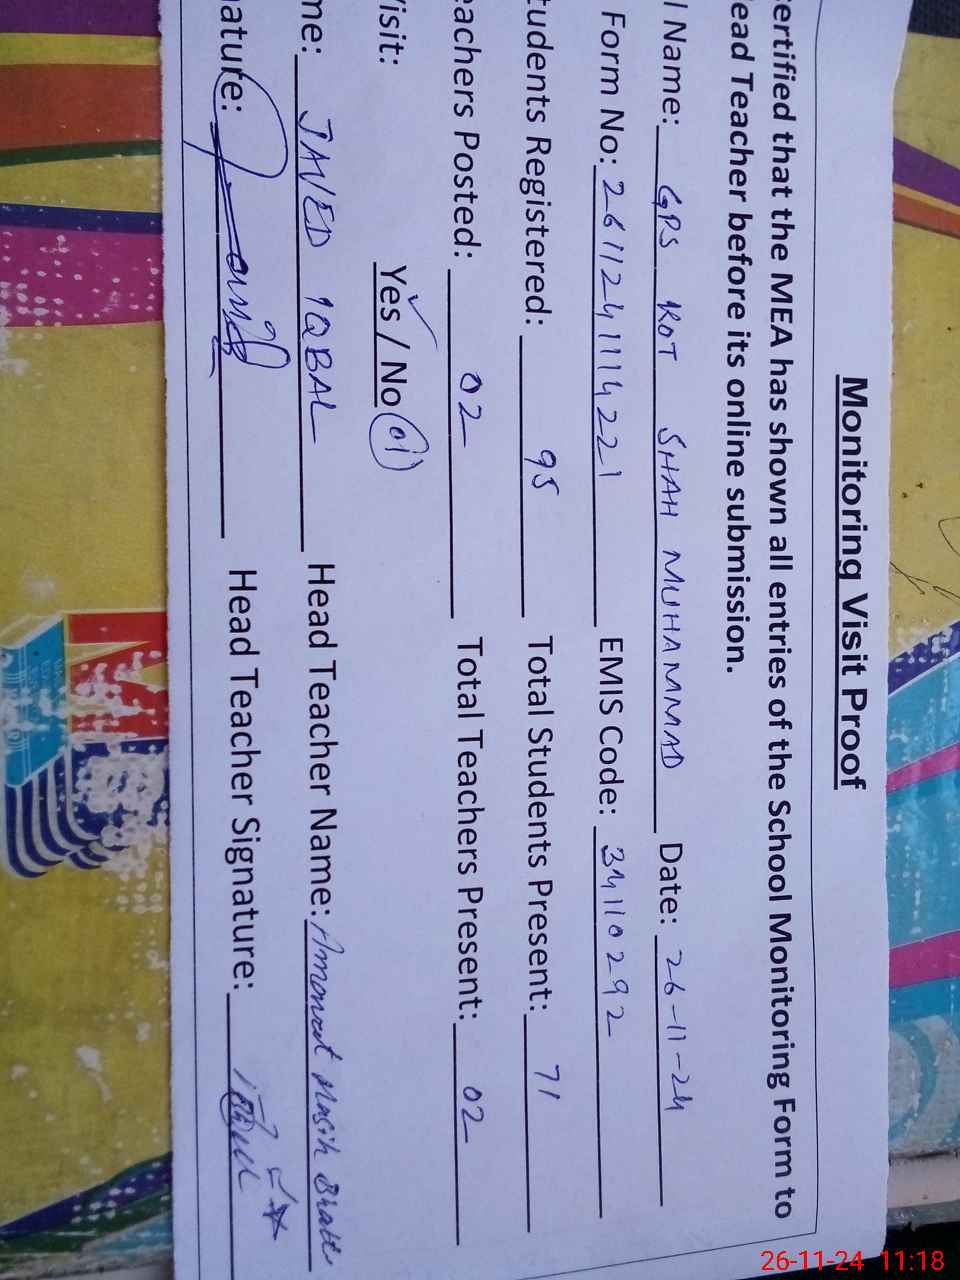 Monitoring Visit Proof
ertified that the MEA has shown all entries of the School Monitoring Form to
ead Teacher before its online submission.
l Name: GPS KOT SHAH MUHAMMAD Date: 26-11-24
Form No: 2611241114221 EMIS Code: 34110292
tudents Registered: 95 Total Students Present: 71
eachers Posted: 02 Total Teachers Present: 02
isit: Yes / No 01
me: JAVED IQBAL Head Teacher Name: Masih
ature: Head Teacher Signature:
26-11-24 11:18